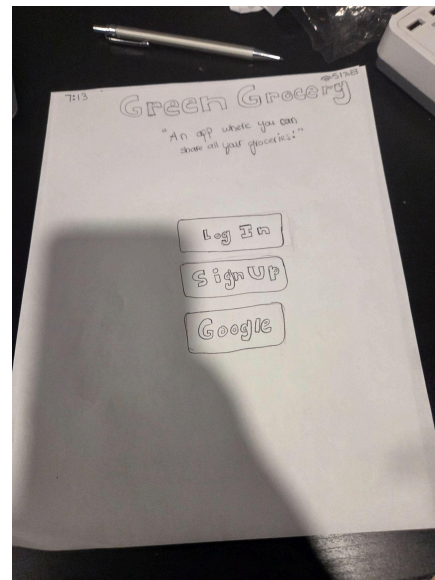 7:13
Green Grocery
"An app where you can
share all your groceries!"
Log In
Sign Up
Google